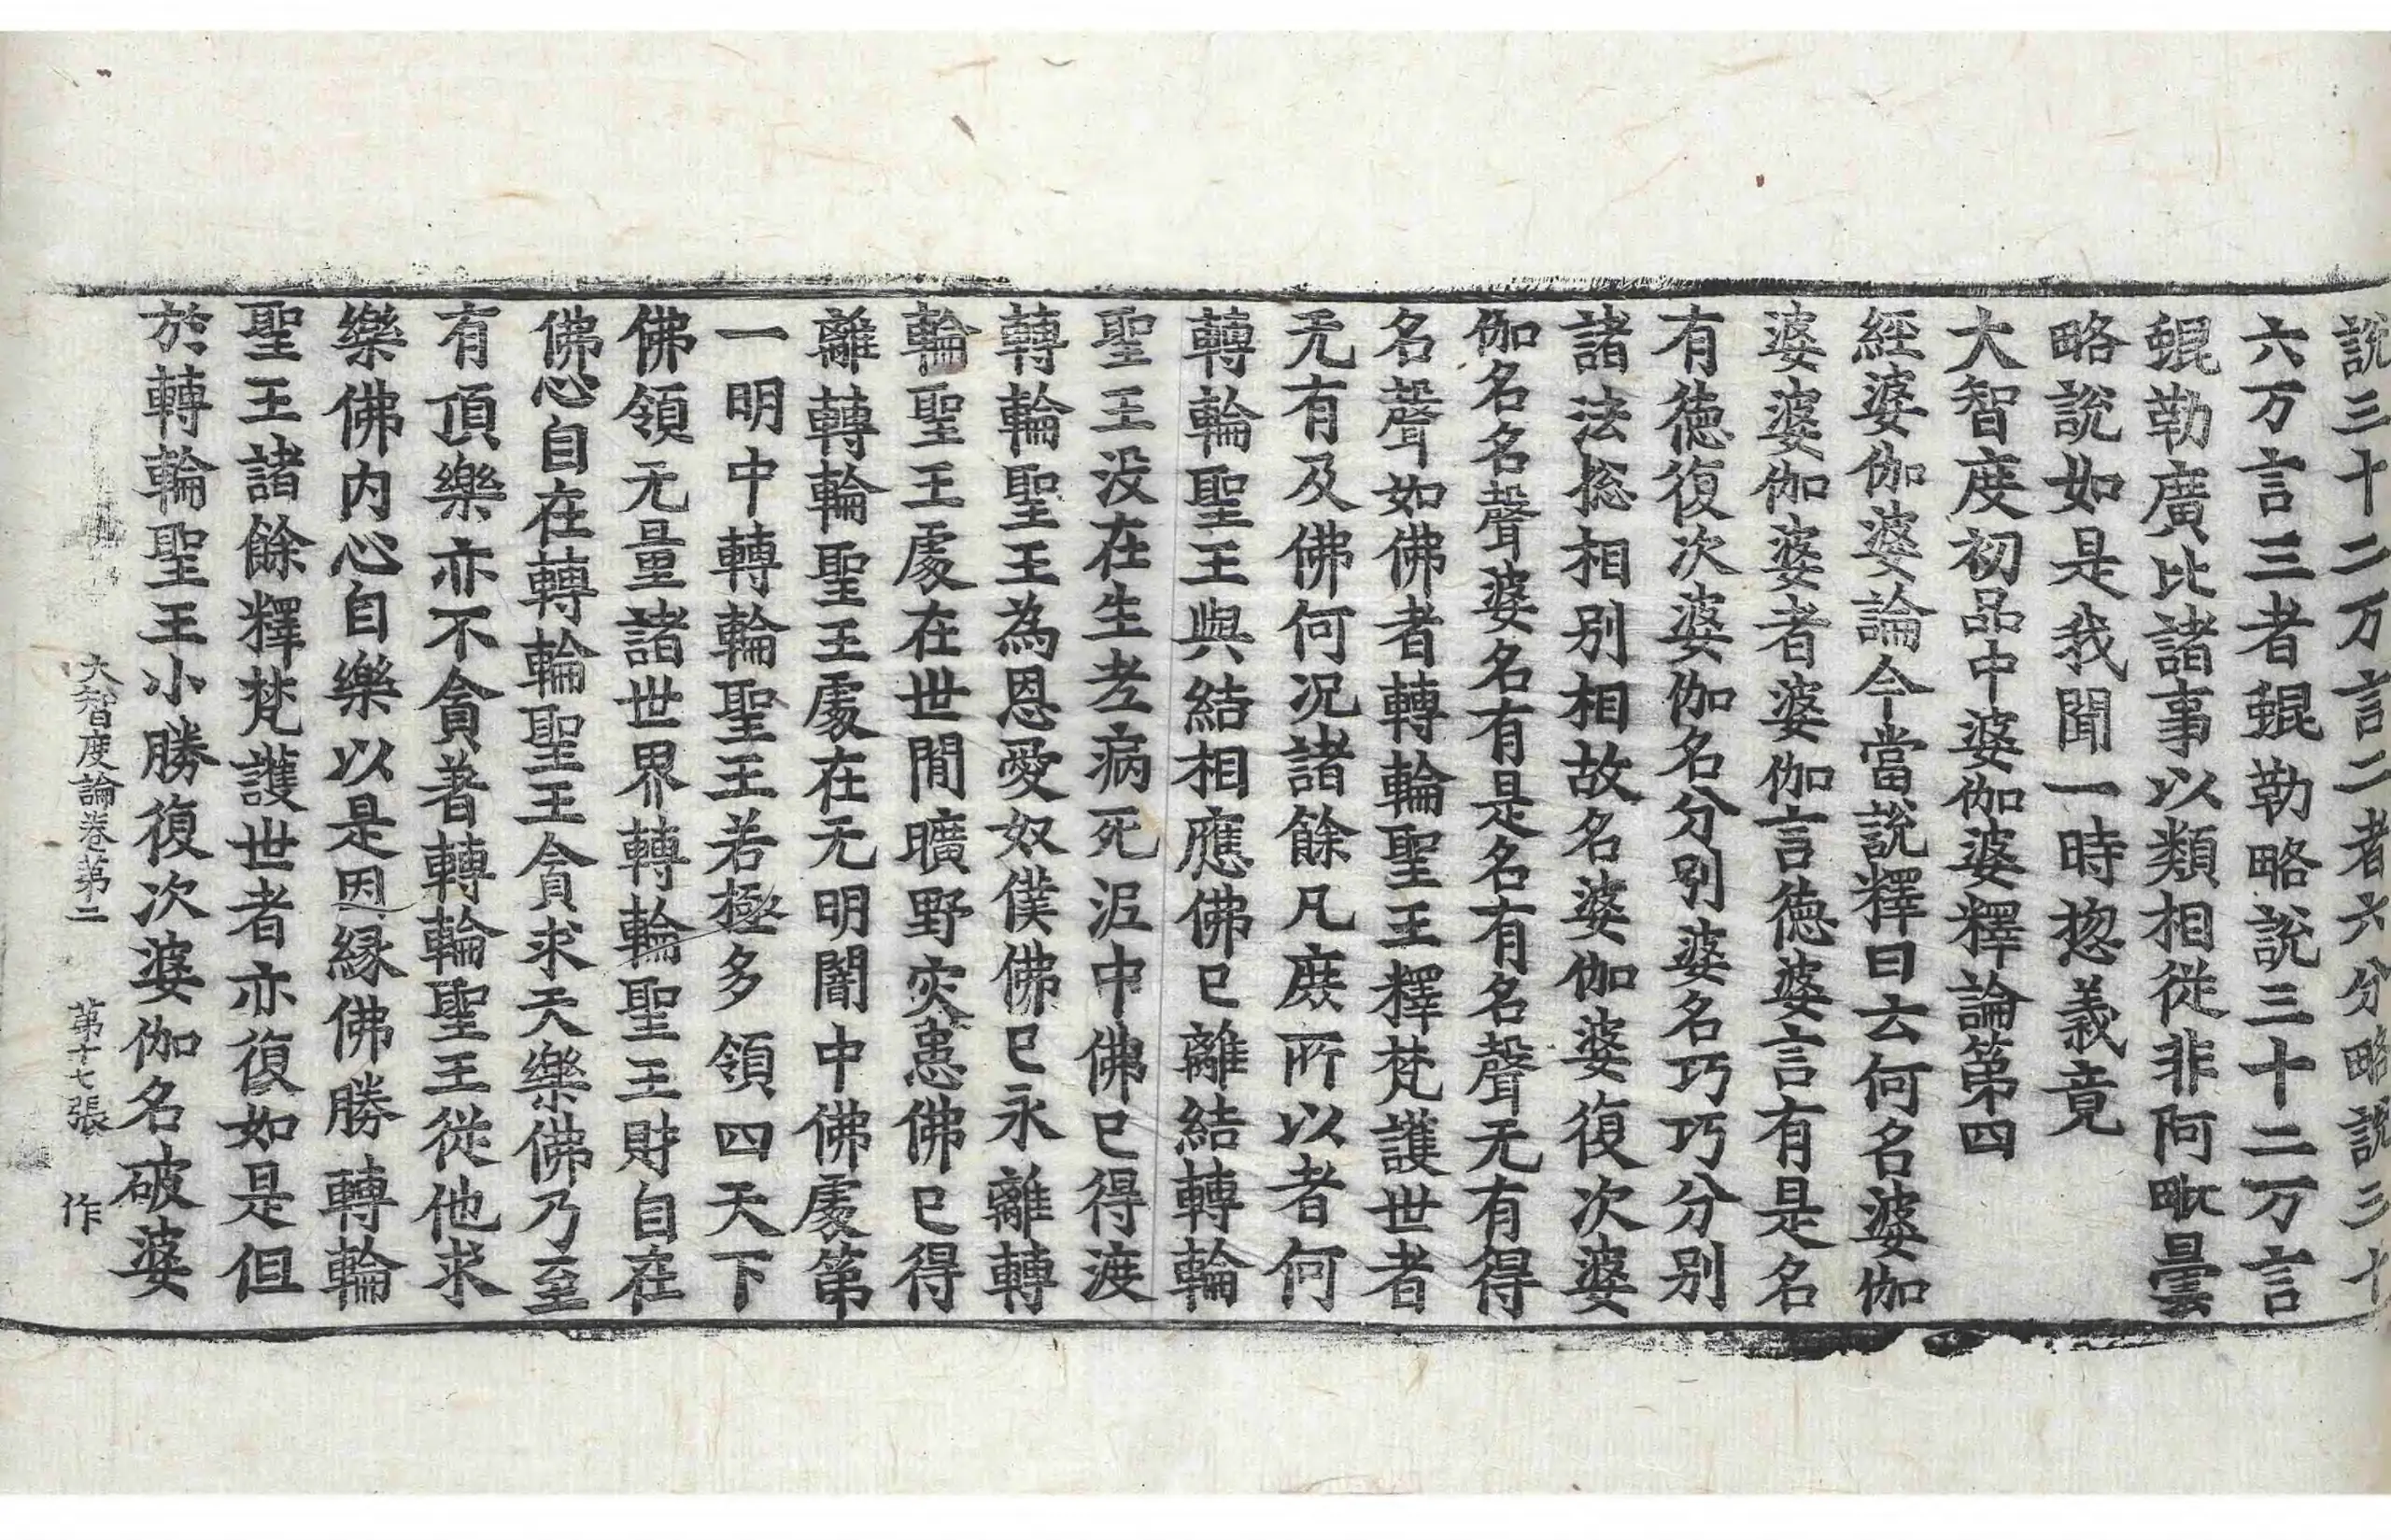 說三十二万言二者六分略說三十
六万言三者蜫勒略說三十二万言
蜫勒廣比諸事以類相從非阿毗曇
略說如是我聞一時揔義竟
大智度初品中婆伽婆釋論第四
經婆伽婆論今當說釋曰云何名婆伽
婆婆伽婆者婆伽言德婆言有是名
有德復次婆伽名分別婆名巧巧分別
諸法揔相別相故名婆伽婆復次婆
伽名名聲婆名有是名有名聲无有得
名聲如佛者轉輪聖王釋梵護世者
无有及佛何況諸餘凡庶所以者何
轉輪聖王與結相應佛已離結轉輪
聖王没在生老病死泥中佛已得渡
轉輪聖王為恩愛奴僕佛已永離轉
輪聖王處在世間曠野灾患佛已得
離轉輪聖王處在无明闇中佛處第
一明中轉輪聖王若極多領四天下
佛領无量諸世界轉輪聖王財自在
佛心自在轉輪聖王貪求天樂佛乃至
有頂樂亦不貪著轉輪聖王從他求
樂佛内心自樂以是因緣佛勝轉輪
聖王諸餘釋梵護世者亦復如是但
於轉輪聖王小勝復次婆伽名破婆
大智度論卷第二 第十七張 作